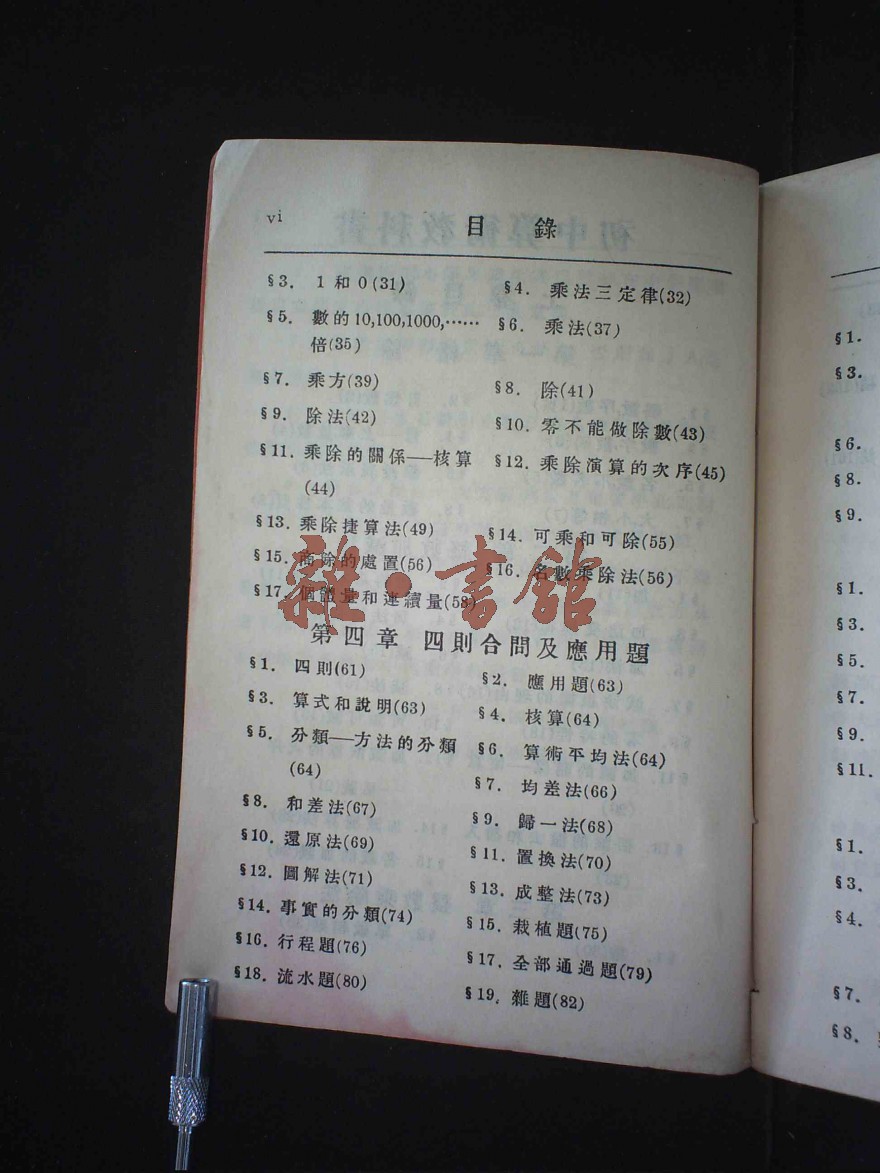 vi
目錄
§3. 1和0(31)
§4. 乘法三定律(32)
§5. 數的10,100,1000,……
倍(35)
§6. 乘法(37)
§7. 乘方(39)
§8. 除(41)
§9. 除法(42)
§10. 零不能做除數(43)
§11. 乘除的關係──核算
(44)
§12. 乘除演算的次序(45)
§13. 乘除捷算法(49)
§14. 可乘和可除(55)
§15. 商除的處置(56)
§16. 名數乘除法(56)
§17. 個體量和連續量(58)
雜·書館
第四章 四則合問及應用題
§1. 四則(61)
§2. 應用題(63)
§3. 算式和說明(63)
§4. 核算(64)
§5. 分類──方法的分類
(64)
§6. 算術平均法(64)
§7. 均差法(66)
§8. 和差法(67)
§9. 歸一法(68)
§10. 還原法(69)
§11. 置換法(70)
§12. 圖解法(71)
§13. 成整法(73)
§14. 事實的分類(74)
§15. 栽植題(75)
§16. 行程題(76)
§17. 全部通過題(79)
§18. 流水題(80)
§19. 雜題(82)
§1.
§3.
§6.
§8.
§9.
§1.
§3.
§5.
§7.
§9.
§11.
§1.
§3.
§4.
§7.
§8.